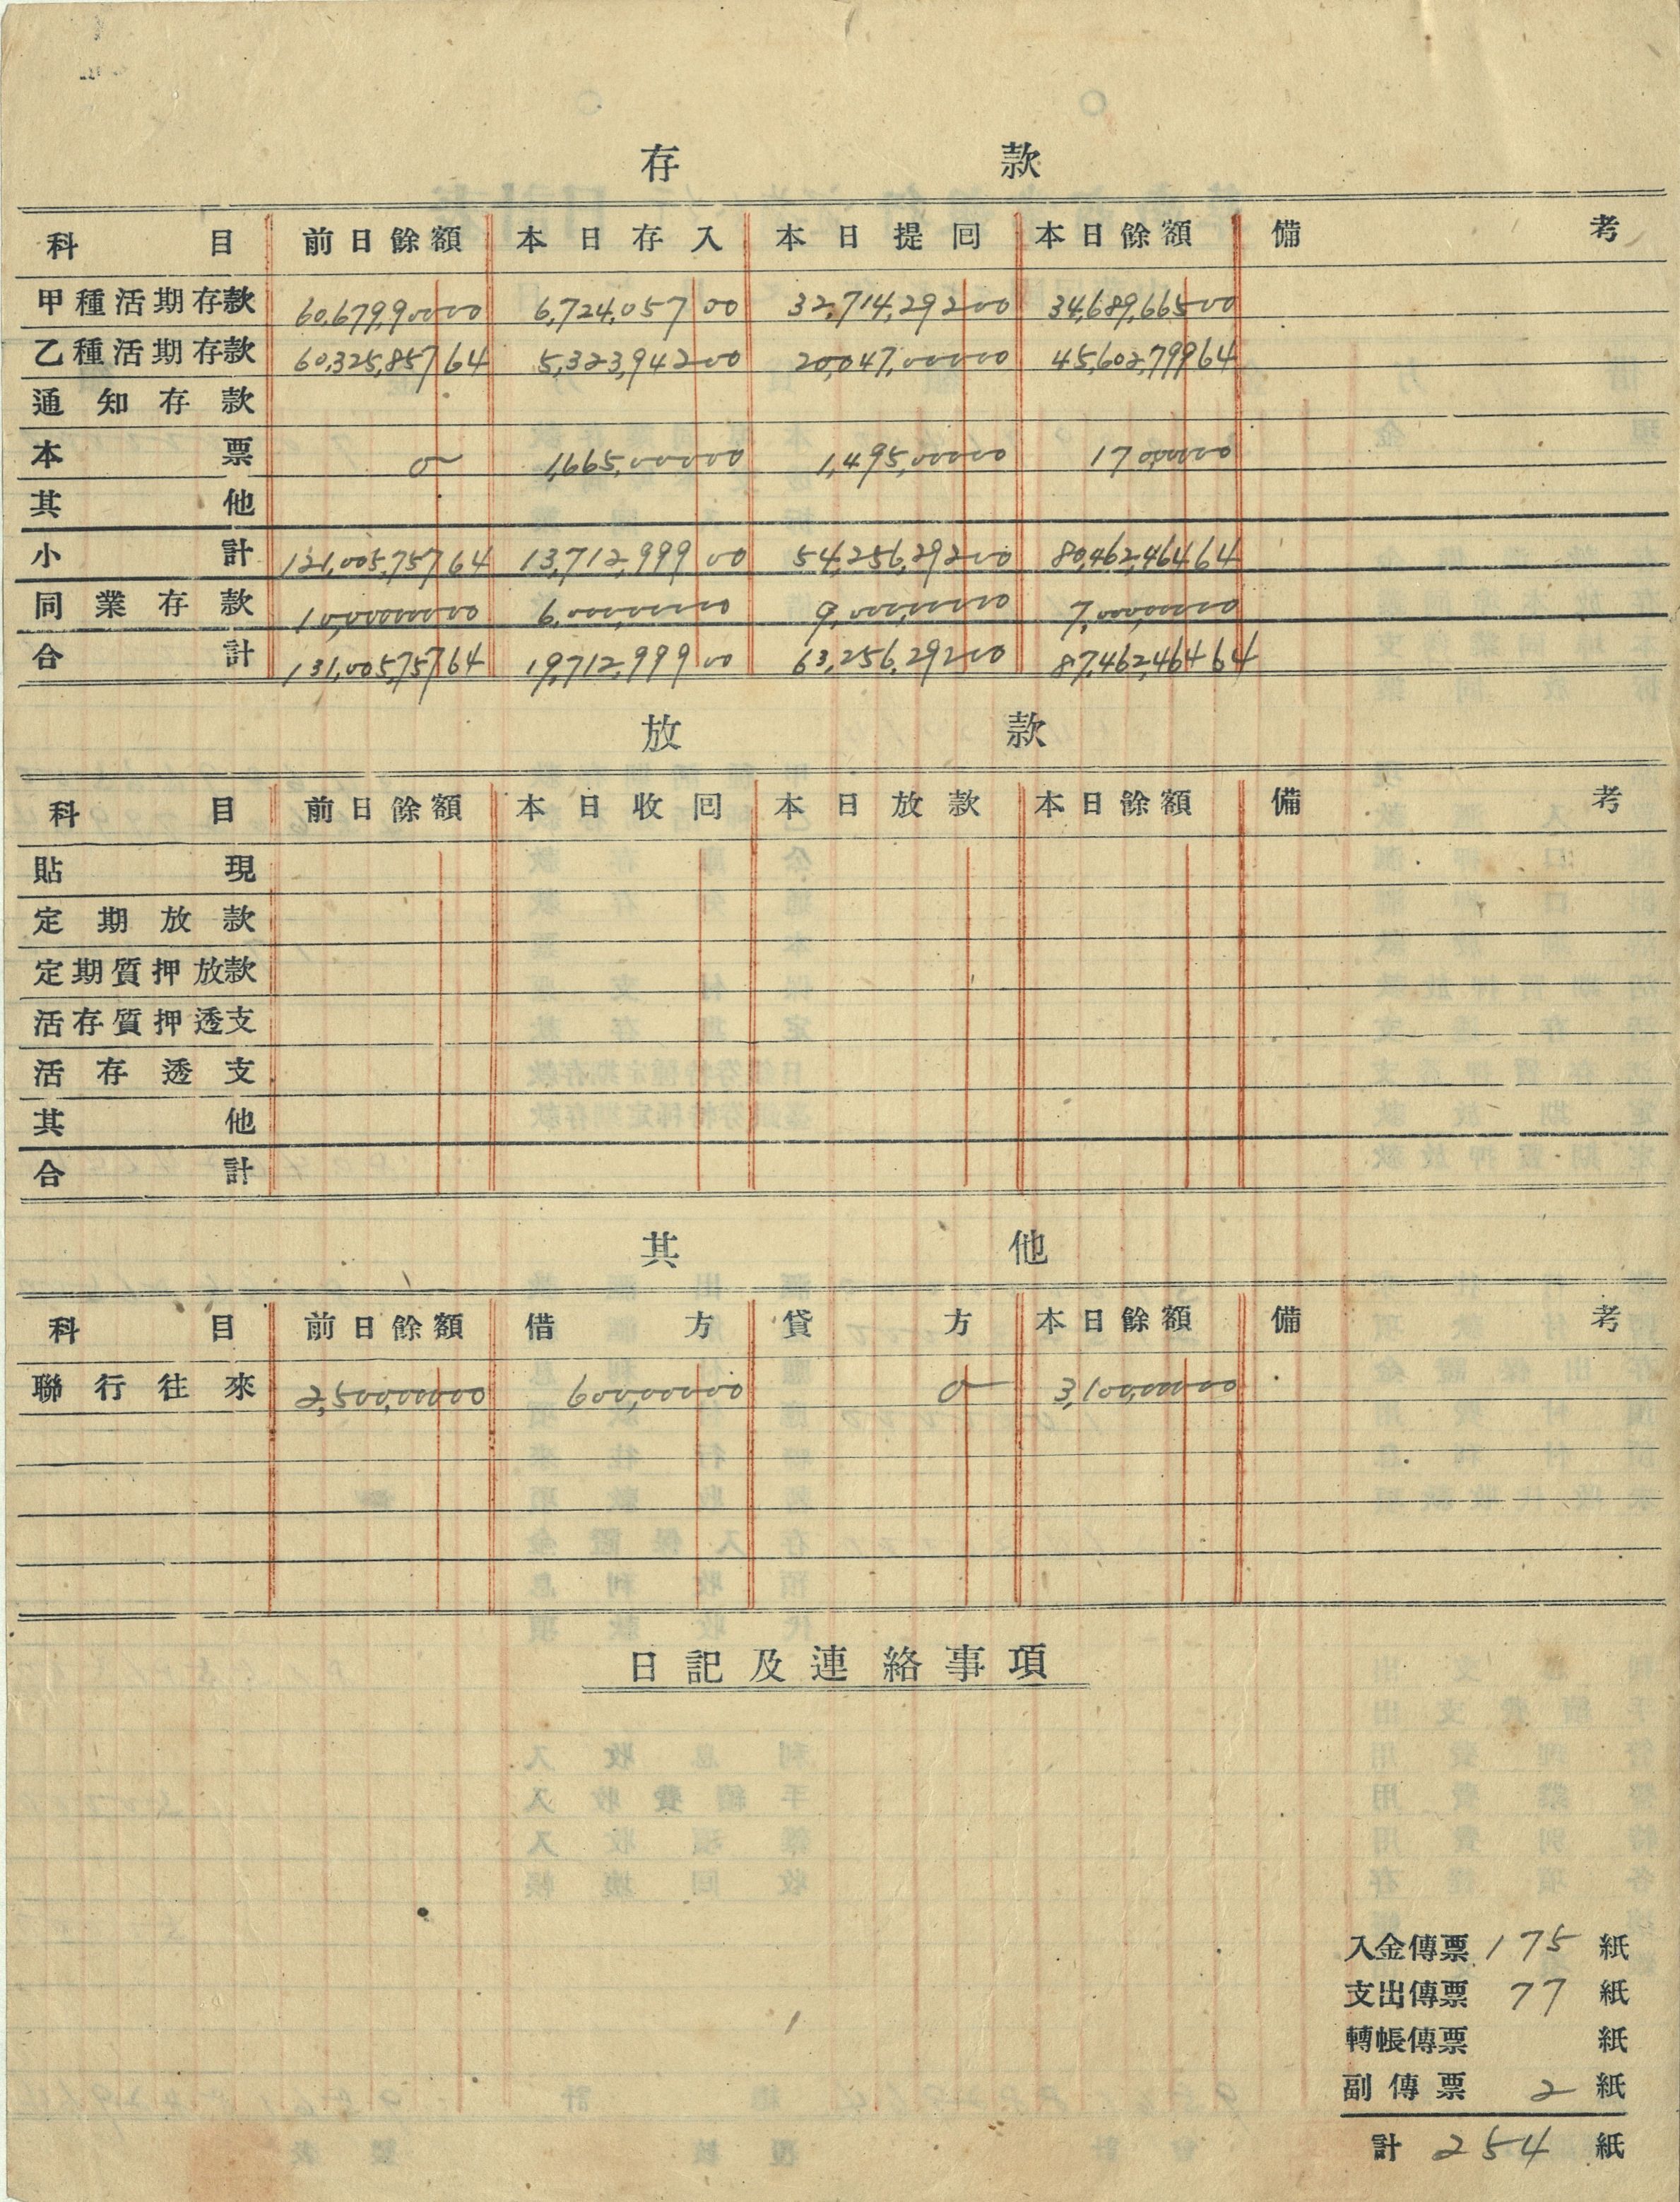 存款
科目 前日餘額 本日存入 本日提囘 本日餘額 備考
甲種活期存款 60,679,900 00 6,724,057 00 32,714,292 00 34,689,665 00
乙種活期存款 60,325,857 64 5,323,942 00 20,047,000 00 45,602,799 64
通知存款
本票 0 1,665,000 00 1,495,000 00 170,000 00
其他
小計 121,005,757 64 13,712,999 00 54,256,292 00 80,462,464 64
同業存款 10,000,000 00 6,000,000 00 9,000,000 00 7,000,000 00
合計 131,005,757 64 19,712,999 00 63,256,292 00 87,462,464 64
放款
科目 前日餘額 本日收囘 本日放款 本日餘額 備考
貼現
定期放款
定期質押放款
活存質押透支
活存透支
其他
合計
其他
科目 前日餘額 借方 貸方 本日餘額 備考
聯行往來 2,500,000 00 600,000 00 0 3,100,000 00
日記及連絡事項
入金傳票 175 紙
支出傳票 77 紙
轉帳傳票 紙
副傳票 2 紙
計 254 紙